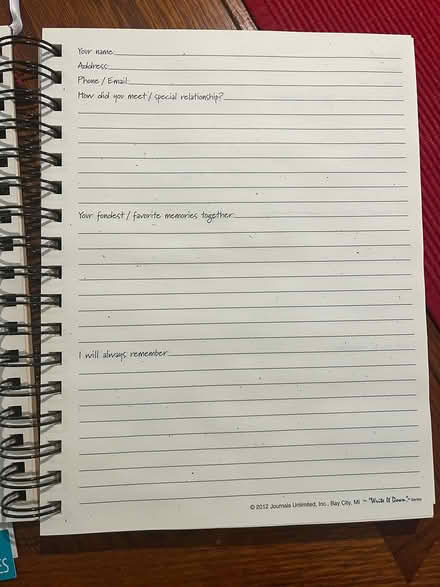 Your name:
Address:
Phone / Email:
How did you meet / special relationship?
Your fondest / favorite memories together:
I will always remember
© 2012 Journals Unlimited, Inc., Bay City, MI ~ "Write It Down" Series
ES